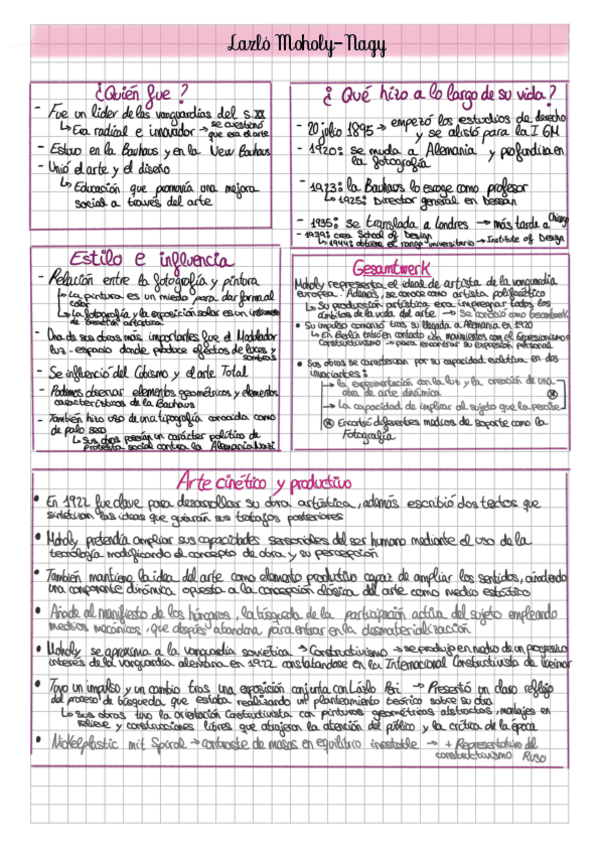 Lazló Moholy-Nagy
¿Quién fue?
- Fue un lider de las vanguardias del s.XX
↳ Era radial e innovador → se cuestionó que era el arte
- Estuvo en la Bauhaus y en la New Bauhaus
- Unió el arte y el diseño
↳ Educación que promovía una mejora
social a través del arte
¿Qué hizo a lo largo de su vida?
- 20 julio 1895 → empezó los estudios de derecho
y se alistó para la I GM
- 1920: se muda a Alemania y profundiza en
la fotografía
- 1923: la Bauhaus lo escoge como profesor
↳ 1925: Director general en Dessau
- 1935: se translada a londres → más tarde a Chicago
- 1939: crea School of Design
↳ 1944: obtiene el rango universitario → Institute of Design
Estilo e influencia
- Relación entre la fotografía y pintura
↳ La pintura es un miedo para dar forma al
color
↳ La fotografía y la exposición solar es un instrumento
de creación artística
- Una de sus obras más importantes fue el Modulador
luz-espacio donde produce efectos de luces y
sombras
- Se influenció del Cubismo y el arte Total
- Podemos observar elementos geométricos y elementos
característicos de la Bauhaus
- También hizo uso de una tipografía conocida como
de palo seco
↳ Sus obras poseían un carácter político de
protesta social contra la Alemania Nazi
Gesamtwerk
Moholy representa el ideal de artista de la vanguardia
europea. Además, se conoce como artista polifacético
↳ Su producción artística era impregnar todos los
ámbitos de la vida del arte → Se conoció como Gesamtwerk
• Su impulso comenzó tras su llegada a Alemania en 1920
↳ En Berlín entró en contacto con movimientos como el Expresionismo o
Constructivismo → para encontrar su expresión personal
• Sus obras se caracterizan por su capacidad evolutiva en dos
invariantes:
↳ la experimentación con la luz y la creación de una
obra de arte dinámica
→ La capacidad de implicar al sujeto que la percibe
⊛ Encontró diferentes medios de soporte como la
Fotografía
Arte cinético y productivo
• En 1922 fue clave para desarrollar su obra artística, además escribió dos textos que
sintetizan las ideas que guiarán sus trabajos posteriores
• Moholy pretendía ampliar sus capacidades sensoriales del ser humano mediante el uso de la
tecnología modificando el concepto de obra y su percepción
• También mantiene la idea del arte como elemento productivo capaz de ampliar los sentidos, añadiendo
una componente dinámica opuesta a la concepción clásica del arte como medio estático
• Añade al manifiesto de los húngaros, la búsqueda de la participación activa del sujeto empleando
medios mecánicos, que después abandona para entrar en la desmaterialización
• Moholy se aproxima a la vanguardia soviética → Constructivismo → se produjo en medio de un progresivo
interés de la vanguardia alemana en 1922 constatándose en la Internacional Constructivista de Weimar
• Tuvo un impulso y un cambio tras una exposición conjunta con László Peri → Presentó un claro reflejo
del proceso de búsqueda que estaba realizando un planteamiento teórico sobre su obra
↳ Sus obras tuvo la orientación Constructivista con pinturas geométricas abstractas, montajes en
relieve y construcciones libres que atrajeron la atención del público y la crítica de la época
• Nickelplastic mit Spiral → contraste de masas en equilibrio inestable → + Representativo del
constructivismo Ruso